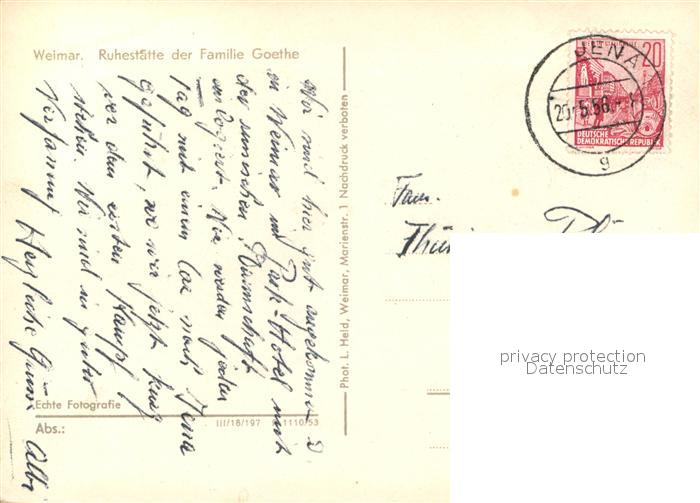 Weimar. Ruhestätte der Familie Goethe
Wir sind hier gut angekommen
in Weimar im Park-Hotel mit
der russischen Mannschaft
einlogiert. Wir werden jeden
Tag mit einem Car nach Jena
geführt, wo wir jetzt kurz
vor dem ersten Kampf
stehen. Wir sind in guter
Verfassung. Herzliche Grüsse Albi
Echte Fotografie
Abs.:
III/18/197 1110/53
Phot. L. Held, Weimar, Marienstr. 1 Nachdruck verboten
JENA
20.5.56
g
20
DEUTSCHE
DEMOKRATISCHE REPUBLIK
Fam.
privacy protection
Datenschutz